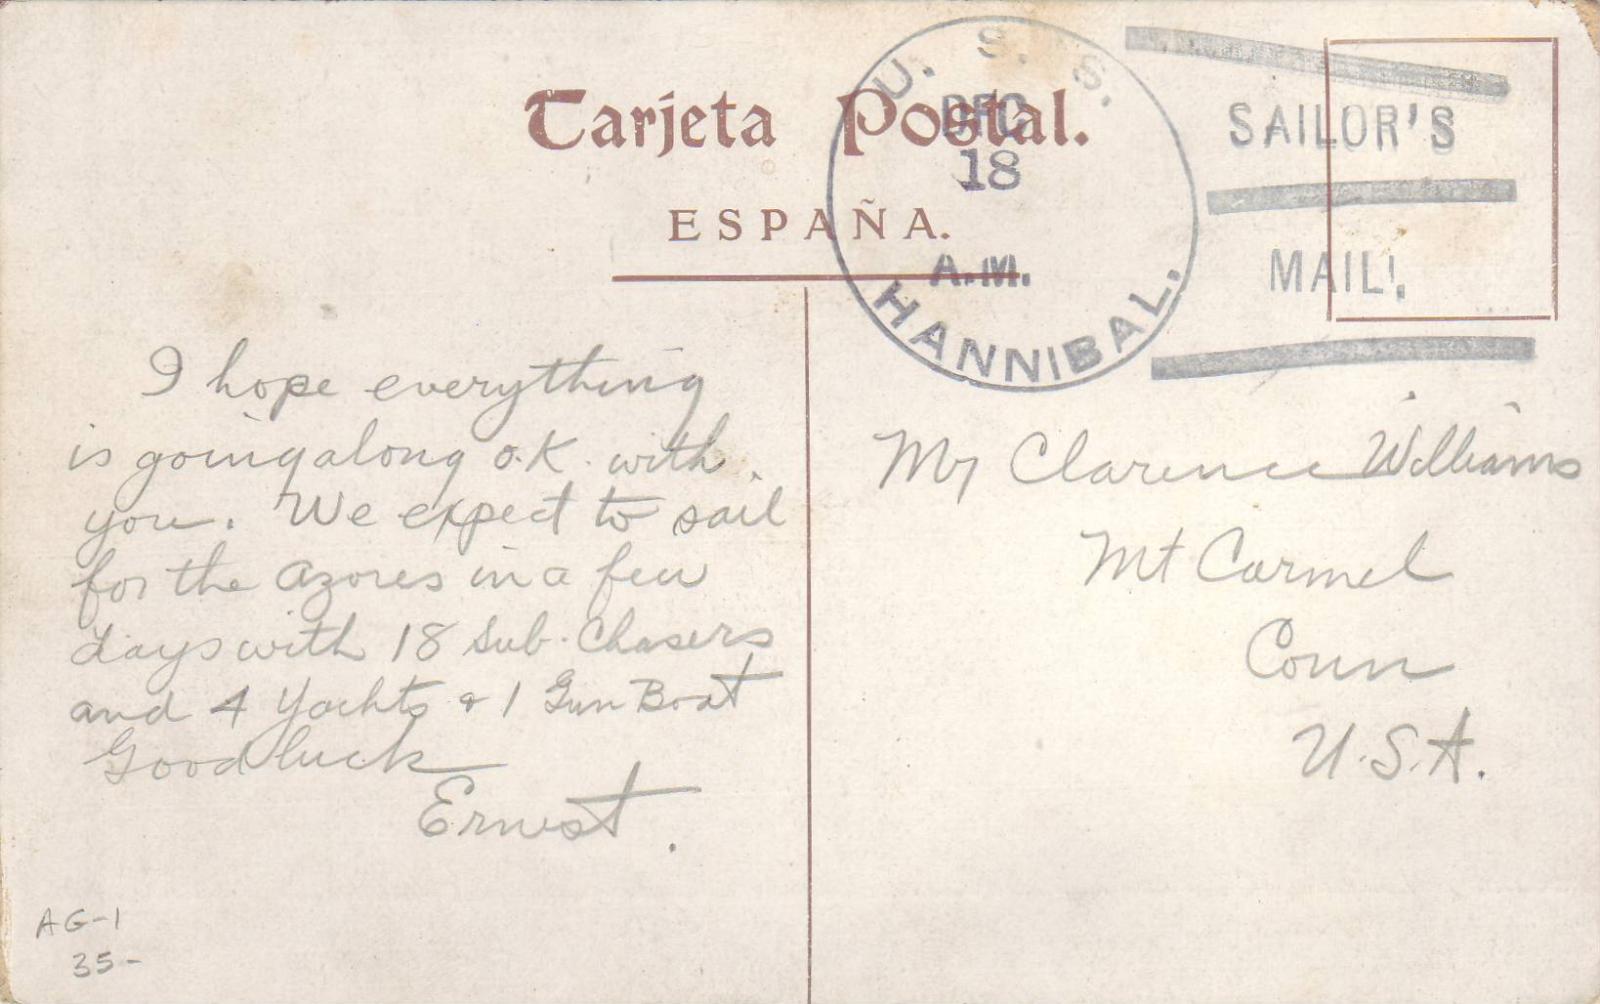 Tarjeta Postal.
ESPAÑA.
U. S. S.
DEC
18
A.M.
HANNIBAL.
SAILOR'S
MAIL.
I hope everything
is going along O.K. with
you. We expect to sail
for the Azores in a few
days with 18 Sub. Chasers
and 4 Yachts & 1 Gun Boat
Good luck
Ernest.
Mr Clarence Williams
Mt Carmel
Conn
U.S.A.
AG-1
35-